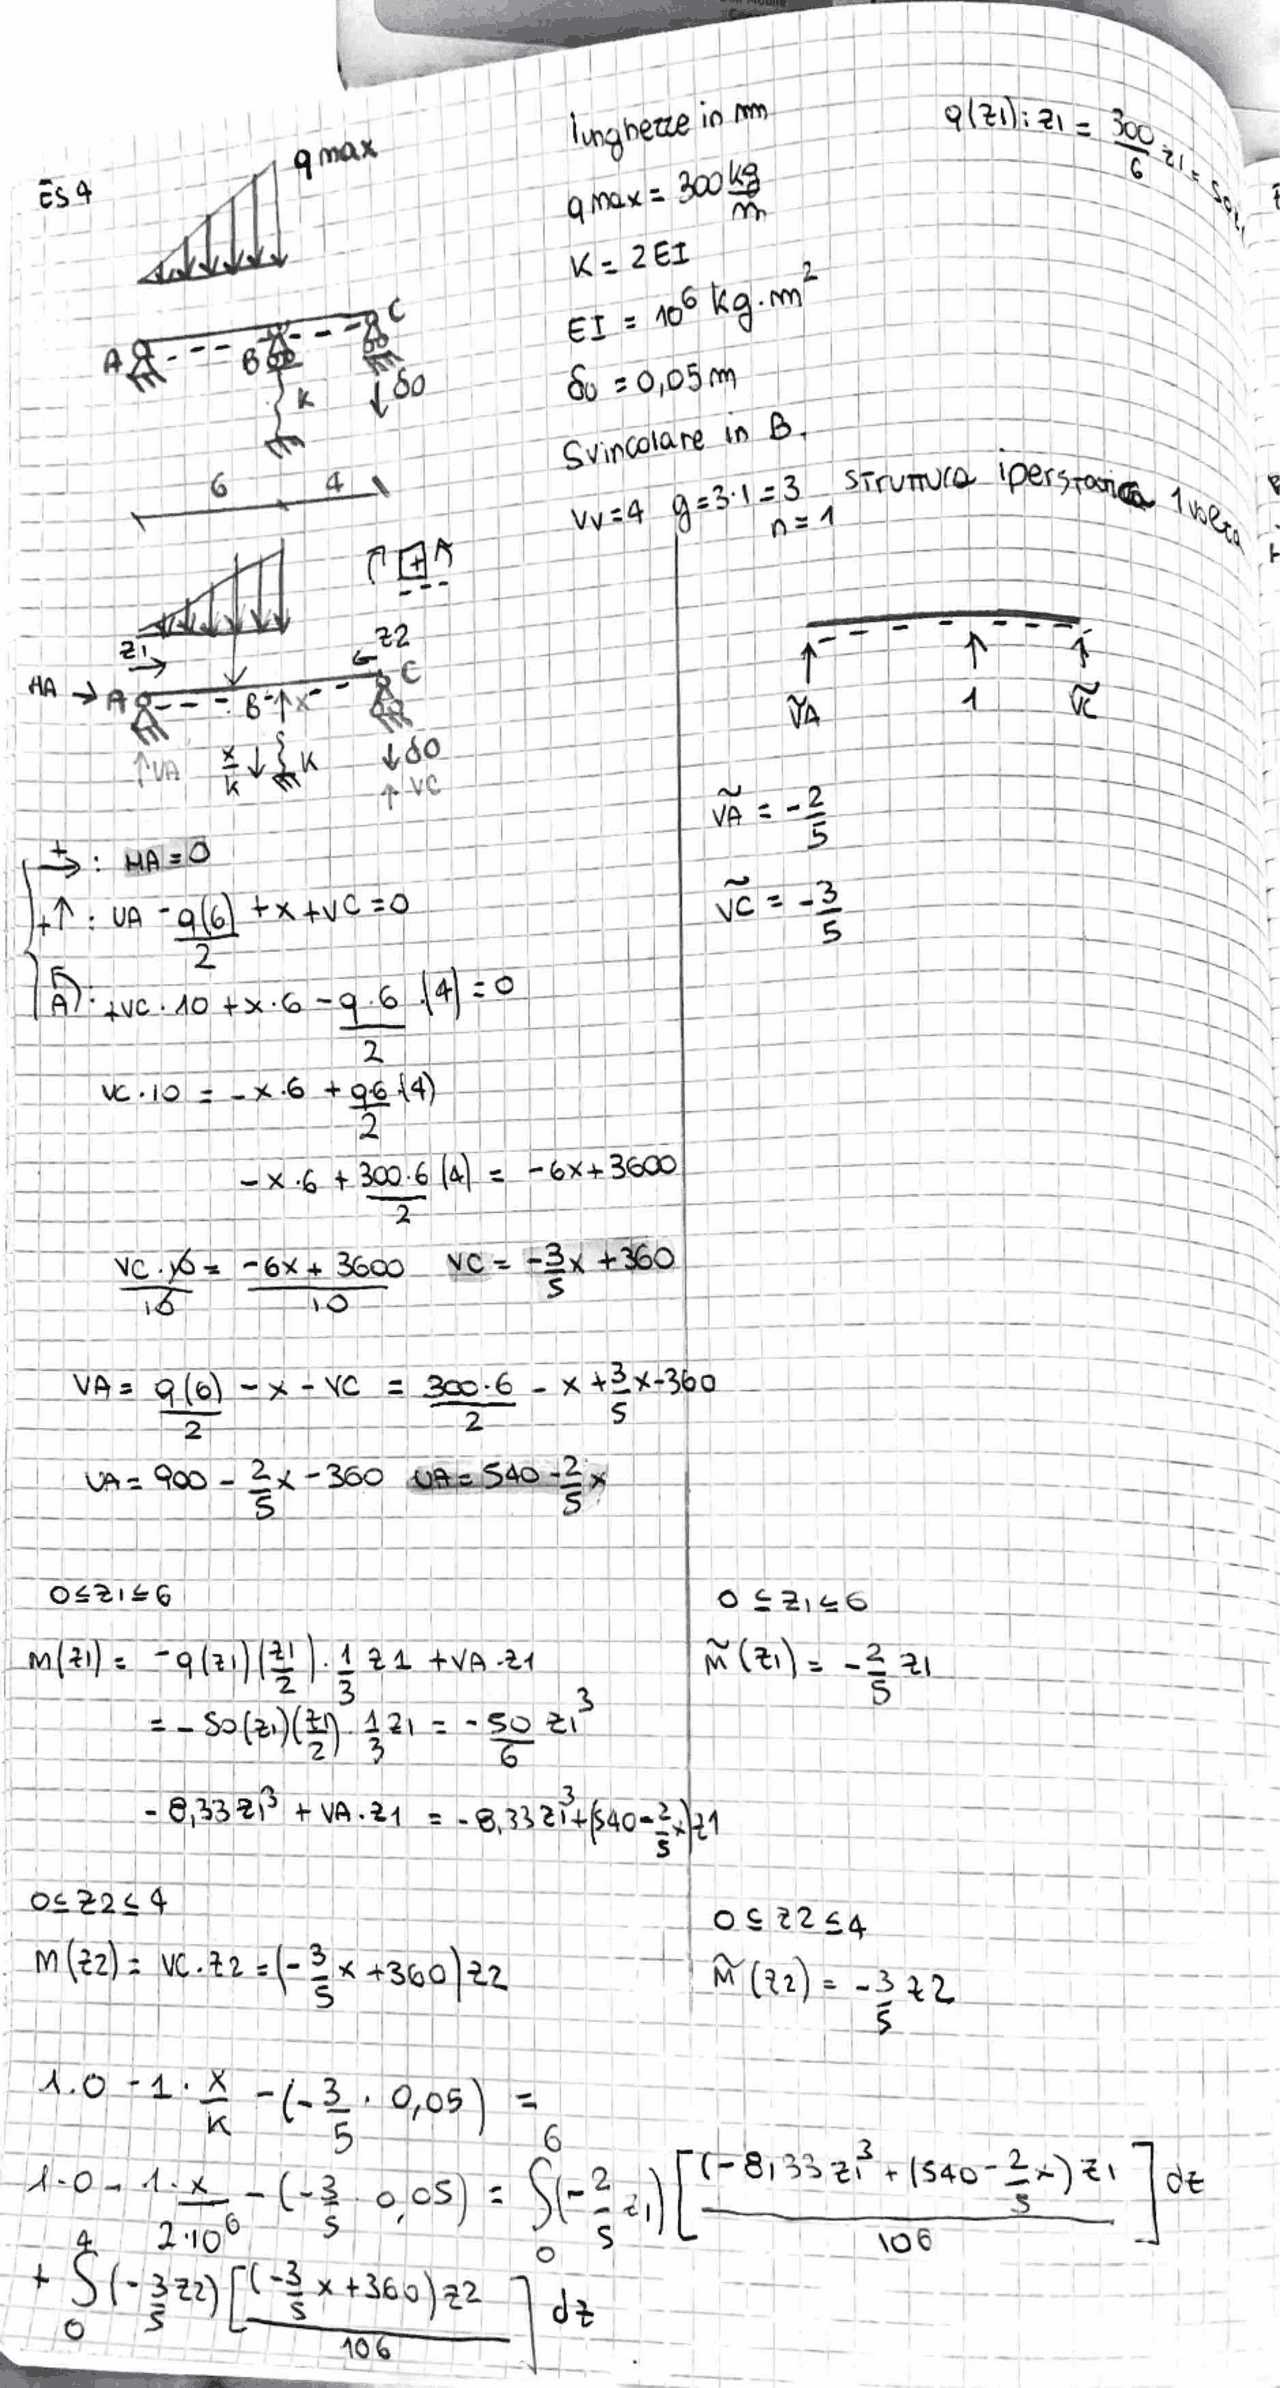 ES 4
q max
A
B
C
K
δ0
6
4
lunghezze in mm
qmax = 300 kg/m
K = 2EI
EI = 10^6 kg·m^2
δ0 = 0,05m
Svincolare in B.
VV=4 g=3·1=3 struttura iperstatica 1 volta
n=1
q(z1): z1 = 300/6 z1 = 50z1
+
z1
z2
HA → A
B
x
C
↑VA
x/k ↓
K
↓δ0
↑VC
ṼA
1
ṼC
ṼA = -2/5
ṼC = -3/5
+→: HA=0
+↑: VA - q(6)/2 + x + VC = 0
A): +VC·10 + x·6 - q·6/2 ·(4) = 0
VC·10 = -x·6 + q6/2·(4)
-x·6 + 300·6/2 (4) = -6x+3600
VC·10/10 = -6x + 3600/10 VC = -3/5x +360
VA = q(6)/2 - x - VC = 300·6/2 - x + 3/5x - 360
VA = 900 - 2/5x - 360 VA = 540 - 2/5x
0≤z1≤6
M(z1) = -q(z1)(z1/2)·1/3 z1 + VA·z1
= -50(z1)(z1/2)·1/3z1 = -50/6 z1^3
-8,33z1^3 + VA·z1 = -8,33z1^3+(540-2/5x)z1
0≤z2≤4
M(z2) = VC·z2 = (-3/5x +360)z2
0≤z1≤6
M̃(z1) = -2/5 z1
0≤z2≤4
M̃(z2) = -3/5 z2
1·0 - 1·x/K - (-3/5 · 0,05) =
1·0 - 1·x/2·10^6 - (-3/5 · 0,05) = ∫_0^6 (-2/5 z1) [(-8,33 z1^3 + (540-2/5x) z1/106] dz
+ ∫_0^4 (-3/5z2) [(-3/5x +360)z2/106] dz